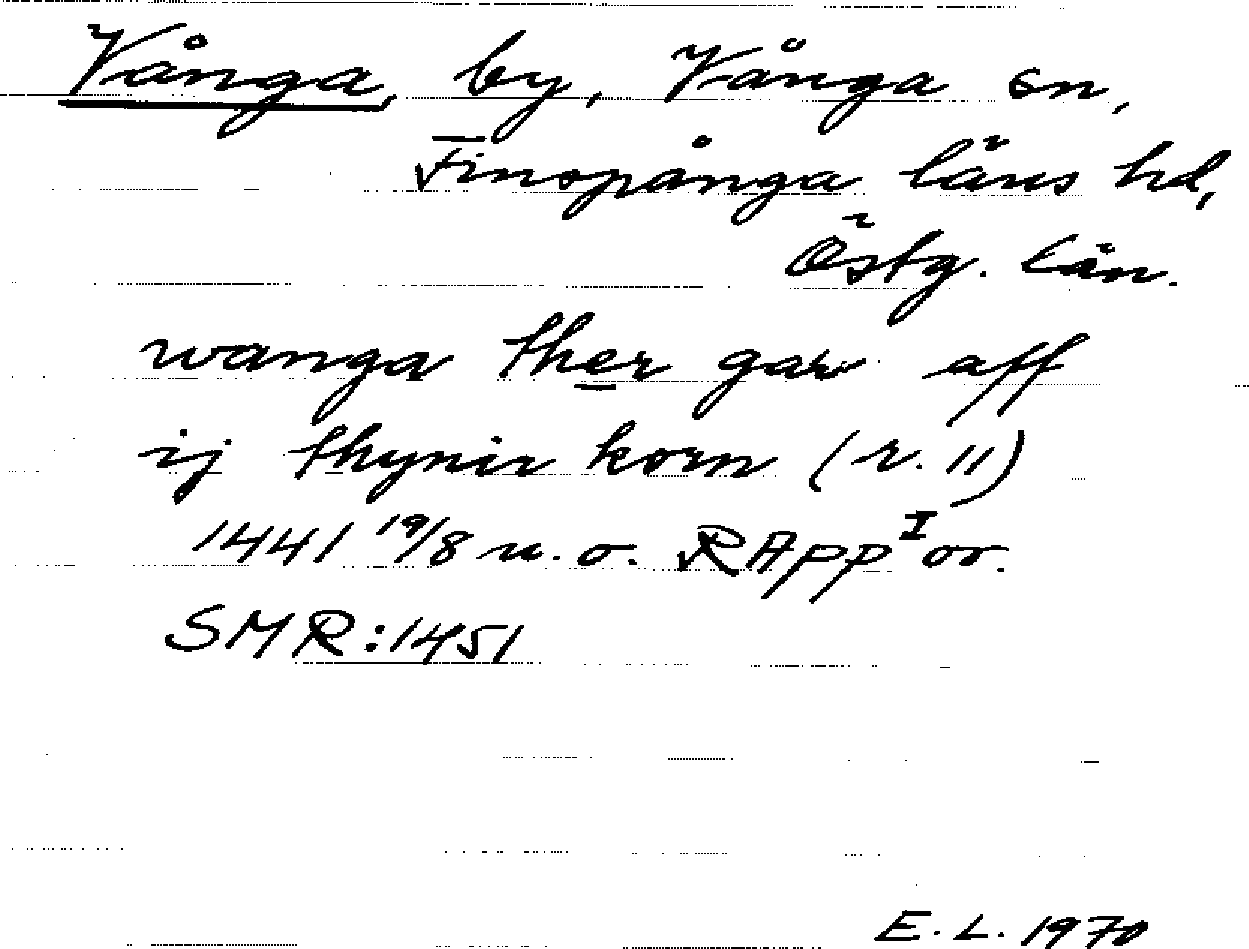 Vånga, by, Vånga sn,
Finspånga läns hd,
Östg. län.
wanga ther gar aff
ij thynir korn (r. 11)
1441 19/8 u. o. RApp I or.
SMR:1451
E. L. 1970